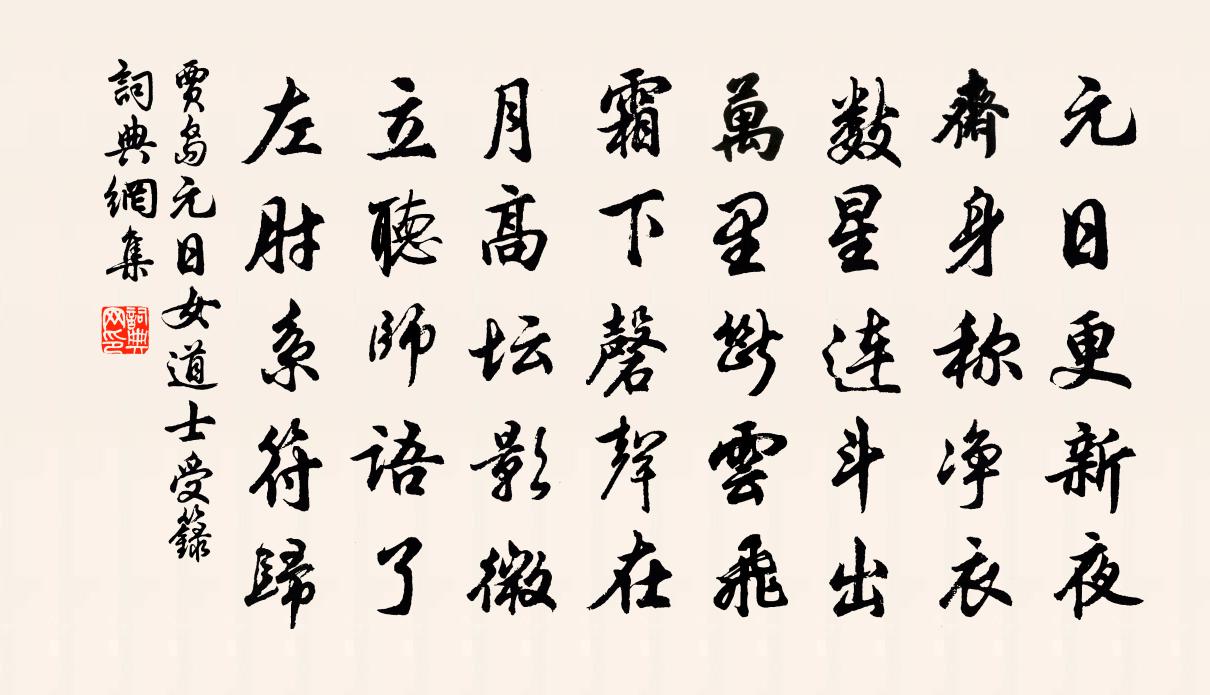 元日更新夜
齋身称净衣
數星連斗出
萬里斷雲飛
霜下磬聲在
月高坛影微
立聽師語了
左肘系符歸
賈島元日女道士受籙
詞典網集
詞典網印